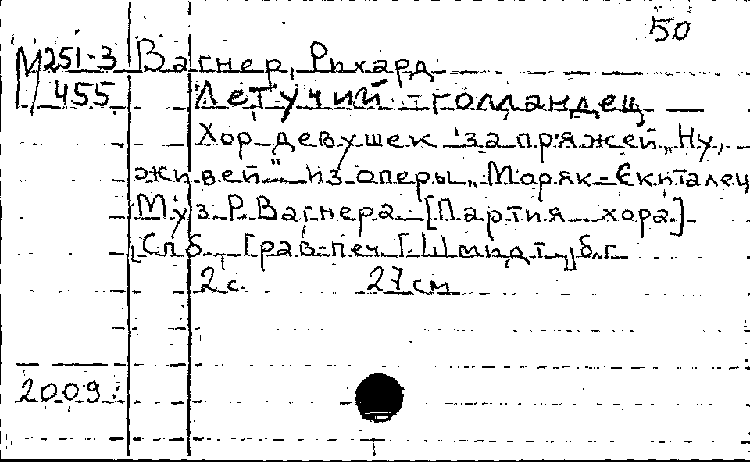 50
М 251-3 Вагнер, Рихард
455 Летучий голландец
Хор девушек за пряжей „Ну,
живей" из оперы „Моряк-Скиталец
Муз. Р. Вагнера [Партия хора]
Спб, Грав-печ. Г. Шмидт, б.г.
2 с. 27 см
2009